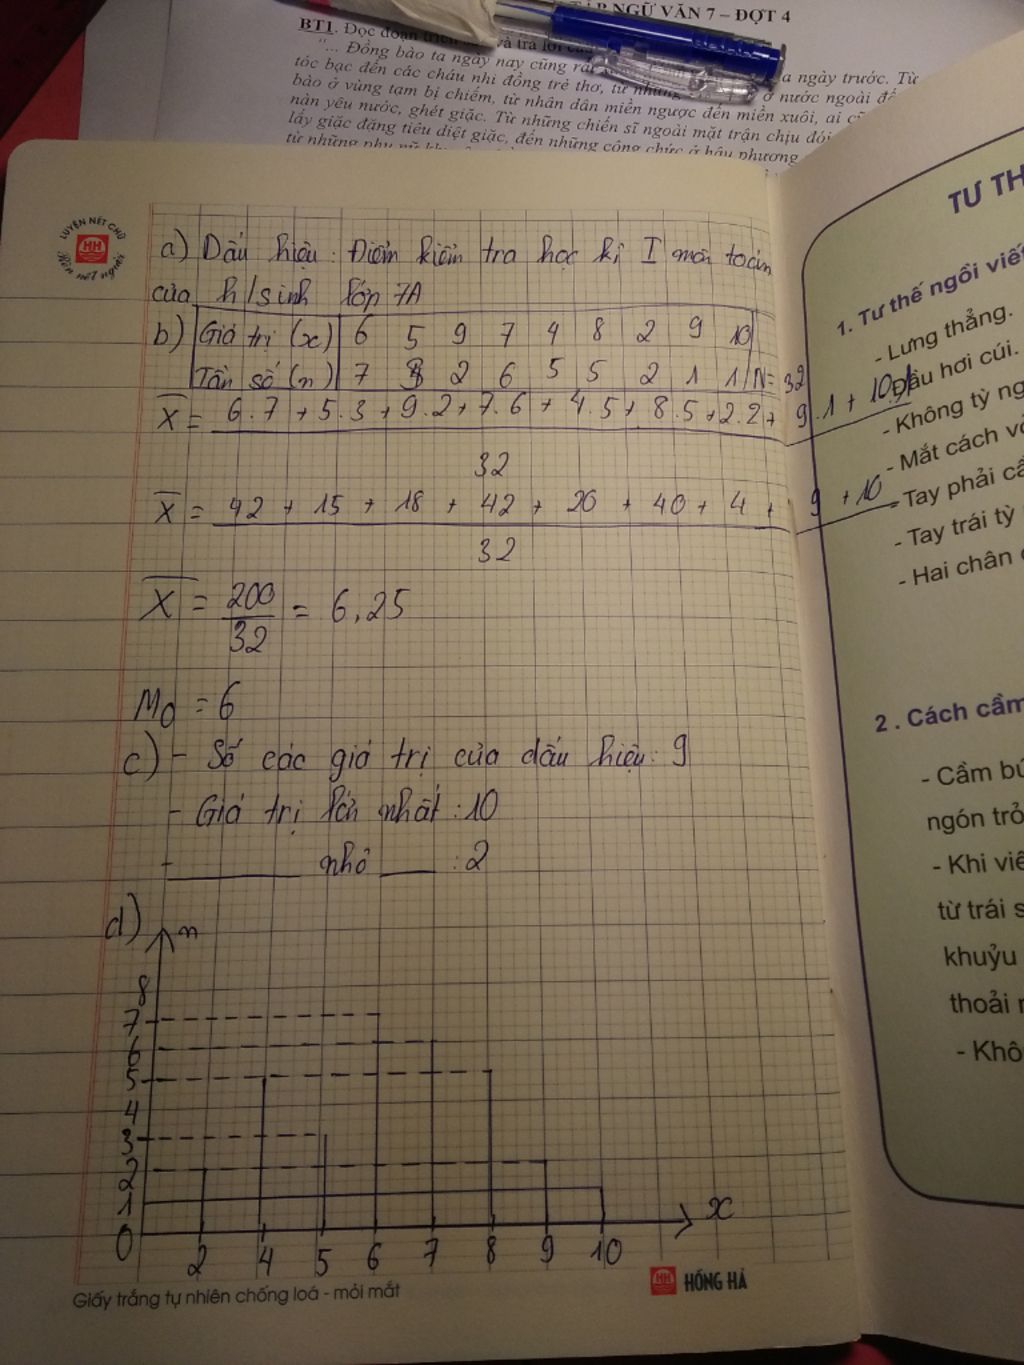 TẬP NGỮ VĂN 7 – ĐỢT 4
BT1. Đọc đoạn trích và trả lời
"... Đồng bào ta ngày nay cũng a ngày trước. Từ
tóc bạc đến các cháu nhi đồng trẻ thơ, từ những ở nước ngoài
bào ở vùng tạm bị chiếm, từ nhân dân miền ngược đến miền xuôi, ai
nàn yêu nước, ghét giặc. Từ những chiến sĩ ngoài mặt trận chịu đói
lấy giặc đặng tiêu diệt giặc, đến những công chức ở hậu phương
từ những phụ nữ
LUYỆN NÉT CHỮ
HH
Rèn nết người
a) Dấu hiệu: Điểm kiểm tra học kì I môn toán
của h/sinh lớp 7A
b) Giá trị (x) 6 5 9 7 4 8 2 9 10
Tần số (n) 7 3 2 6 5 5 2 1 1 N= 32
X = 6.7 + 5.3 + 9.2 + 7.6 + 4.5 + 8.5 + 2.2 + 9.1 + 10.1
32
X = 42 + 15 + 18 + 42 + 20 + 40 + 4 + 9 + 10
32
X = 200 = 6,25
32
M0 = 6
c) - Số các giá trị của dấu hiệu: 9
- Giá trị lớn nhất : 10
- nhỏ : 2
d) n
8
7
6
5
4
3
2
1
0 2 4 5 6 7 8 9 10 x
Giấy trắng tự nhiên chống loá - mỏi mắt
HH HỒNG HÀ
TƯ TH
1. Tư thế ngồi viết
- Lưng thẳng.
- Đầu hơi cúi.
- Không tỳ ng
- Mắt cách vở
- Tay phải cầ
- Tay trái tỳ
- Hai chân
2 . Cách cầm
- Cầm bú
ngón trỏ
- Khi viế
từ trái s
khuỷu
thoải m
- Khô